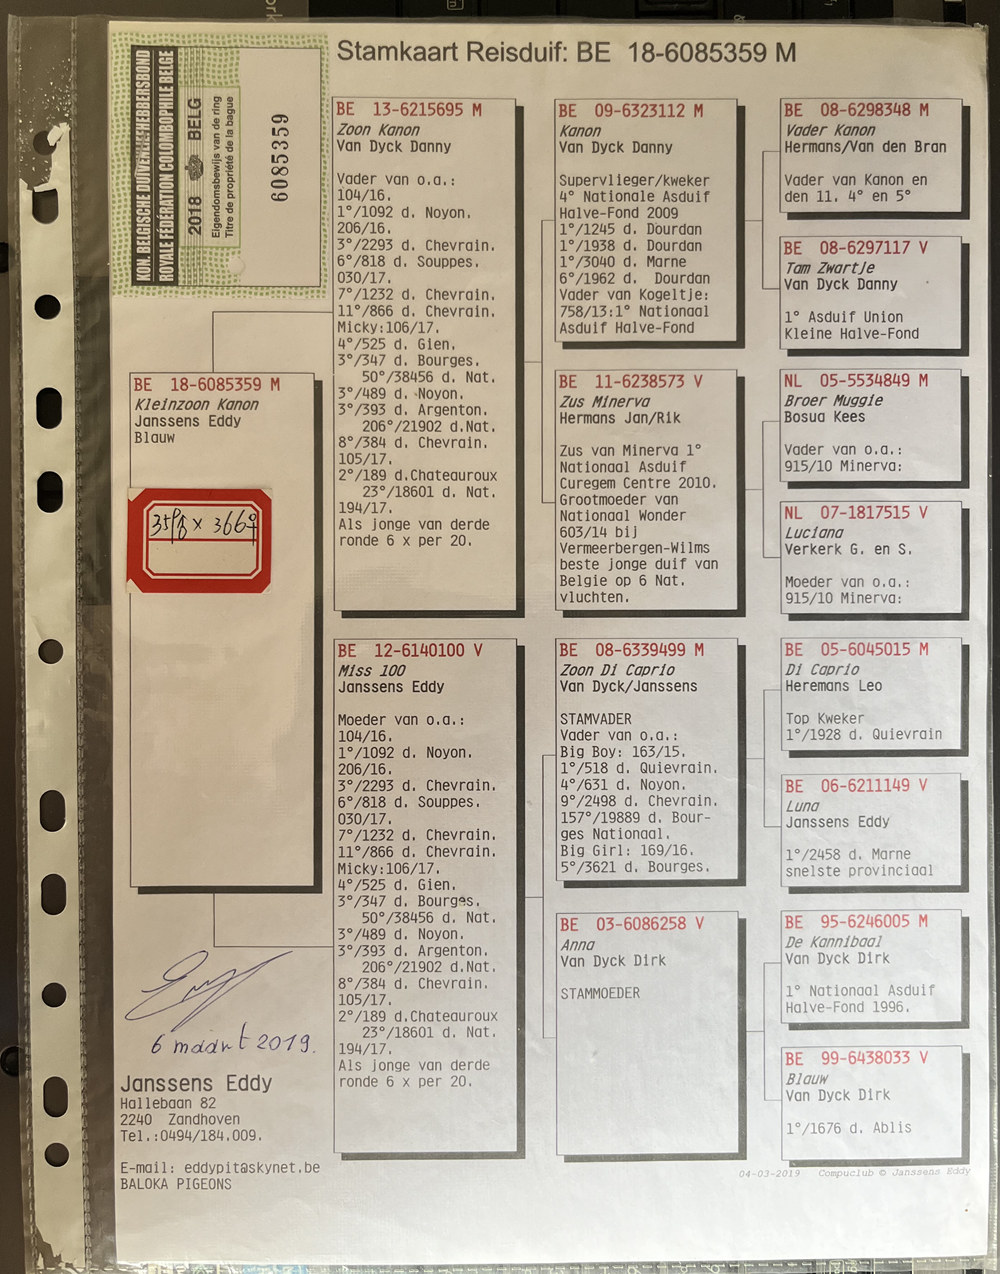 Stamkaart Reisduif: BE 18-6085359 M
KON. BELGISCHE DUIVENLIEFHEBBERSBOND
ROYALE FÉDÉRATION COLOMBOPHILE BELGE
2018 BELG
Eigendomsbewijs van de ring
Titre de propriété de la bague
6085359
BE 18-6085359 M
Kleinzoon Kanon
Janssens Eddy
Blauw
359♂ x 366♀
BE 13-6215695 M
Zoon Kanon
Van Dyck Danny
Vader van o.a.:
104/16.
1°/1092 d. Noyon.
206/16.
3°/2293 d. Chevrain.
6°/818 d. Souppes.
030/17.
7°/1232 d. Chevrain.
11°/866 d. Chevrain.
Micky:106/17.
4°/525 d. Gien.
3°/347 d. Bourges.
50°/38456 d. Nat.
3°/489 d. Noyon.
3°/393 d. Argenton.
206°/21902 d.Nat.
8°/384 d. Chevrain.
105/17.
2°/189 d.Chateauroux
23°/18601 d. Nat.
194/17.
Als jonge van derde
ronde 6 x per 20.
BE 12-6140100 V
Miss 100
Janssens Eddy
Moeder van o.a.:
104/16.
1°/1092 d. Noyon.
206/16.
3°/2293 d. Chevrain.
6°/818 d. Souppes.
030/17.
7°/1232 d. Chevrain.
11°/866 d. Chevrain.
Micky:106/17.
4°/525 d. Gien.
3°/347 d. Bourges.
50°/38456 d. Nat.
3°/489 d. Noyon.
3°/393 d. Argenton.
206°/21902 d.Nat.
8°/384 d. Chevrain.
105/17.
2°/189 d.Chateauroux
23°/18601 d. Nat.
194/17.
Als jonge van derde
ronde 6 x per 20.
BE 09-6323112 M
Kanon
Van Dyck Danny
Supervlieger/kweker
4° Nationale Asduif
Halve-Fond 2009
1°/1245 d. Dourdan
1°/1938 d. Dourdan
1°/3040 d. Marne
6°/1962 d. Dourdan
Vader van Kogeltje:
758/13:1° Nationaal
Asduif Halve-Fond
BE 11-6238573 V
Zus Minerva
Hermans Jan/Rik
Zus van Minerva 1°
Nationaal Asduif
Curegem Centre 2010.
Grootmoeder van
Nationaal Wonder
603/14 bij
Vermeerbergen-Wilms
beste jonge duif van
Belgie op 6 Nat.
vluchten.
BE 08-6339499 M
Zoon Di Caprio
Van Dyck/Janssens
STAMVADER
Vader van o.a.:
Big Boy: 163/15.
1°/518 d. Quievrain.
4°/631 d. Noyon.
9°/2498 d. Chevrain.
157°/19889 d. Bour-
ges Nationaal.
Big Girl: 169/16.
5°/3621 d. Bourges.
BE 03-6086258 V
Anna
Van Dyck Dirk
STAMMOEDER
BE 08-6298348 M
Vader Kanon
Hermans/Van den Bran
Vader van Kanon en
den 11. 4° en 5°
BE 08-6297117 V
Tam Zwartje
Van Dyck Danny
1° Asduif Union
Kleine Halve-Fond
NL 05-5534849 M
Broer Muggie
Bosua Kees
Vader van o.a.:
915/10 Minerva:
NL 07-1817515 V
Luciana
Verkerk G. en S.
Moeder van o.a.:
915/10 Minerva:
BE 05-6045015 M
Di Caprio
Heremans Leo
Top Kweker
1°/1928 d. Quievrain
BE 06-6211149 V
Luna
Janssens Eddy
1°/2458 d. Marne
snelste provinciaal
BE 95-6246005 M
De Kannibaal
Van Dyck Dirk
1° Nationaal Asduif
Halve-Fond 1996.
BE 99-6438033 V
Blauw
Van Dyck Dirk
1°/1676 d. Ablis
6 maart 2019.
Janssens Eddy
Hallebaan 82
2240 Zandhoven
Tel.:0494/184.009.
E-mail: eddypit@skynet.be
BALOKA PIGEONS
04-03-2019 Compuclub © Janssens Eddy